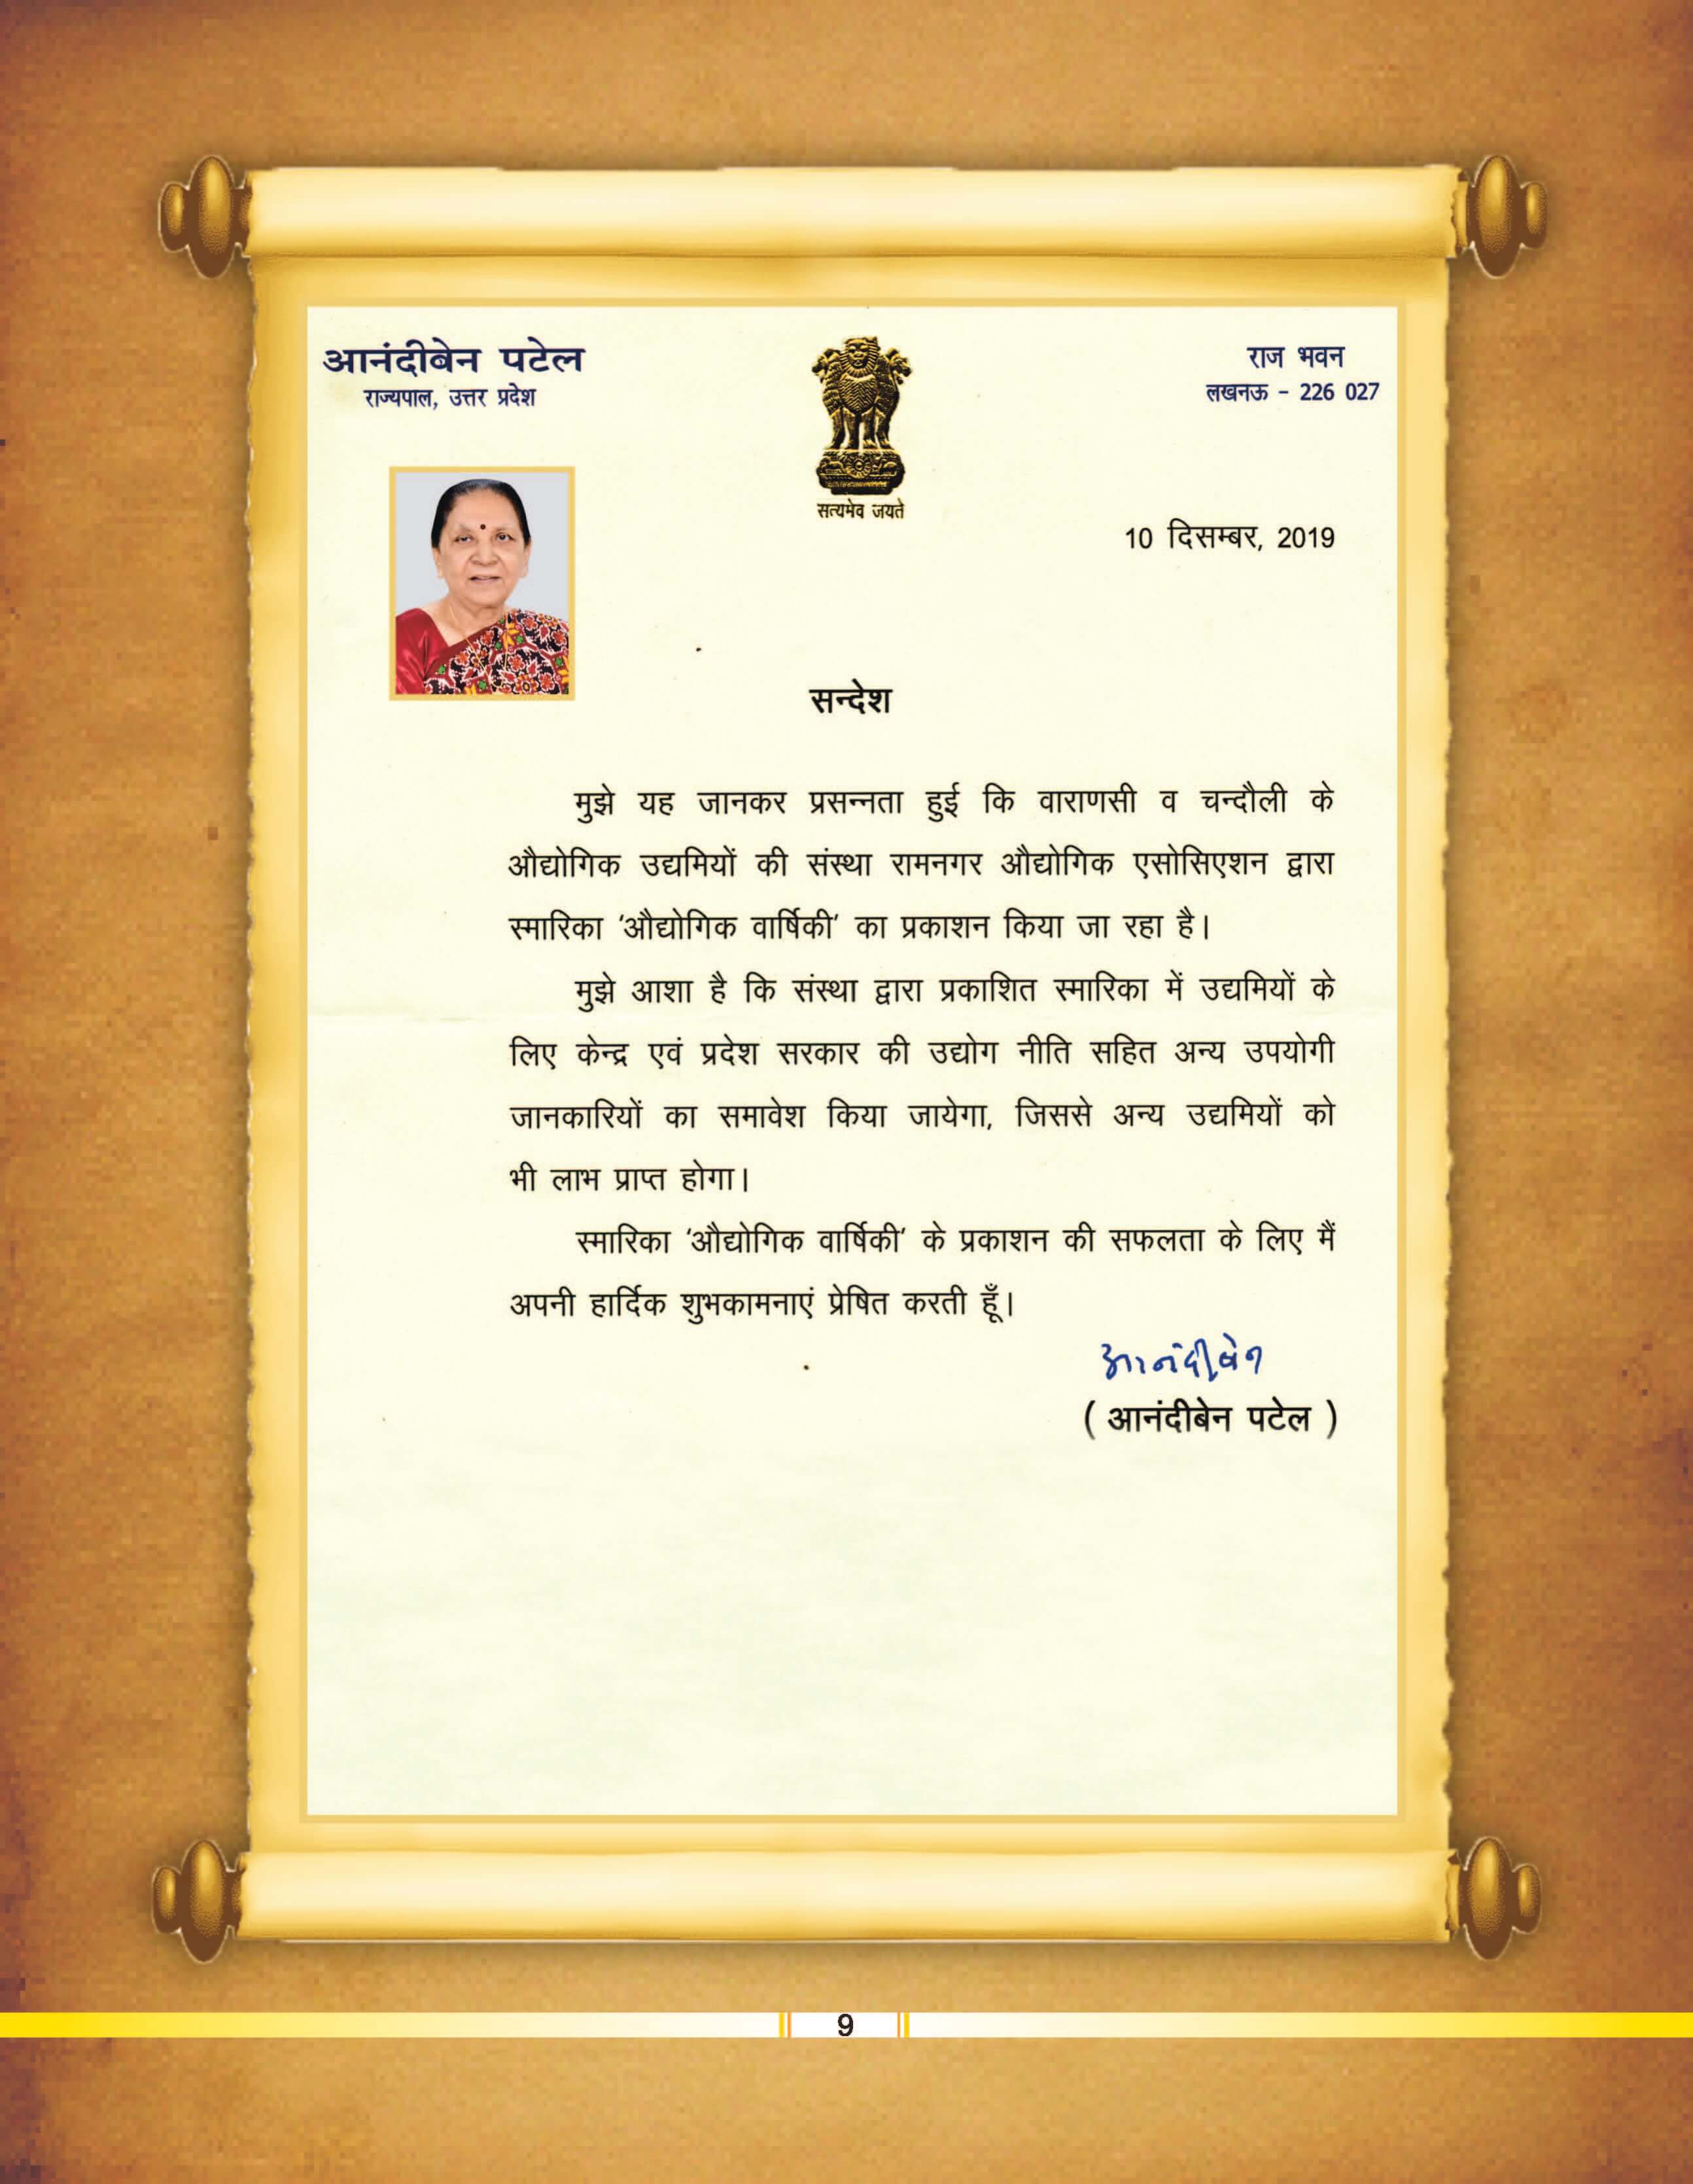 आनंदीबेन पटेल
राज्यपाल, उत्तर प्रदेश
सत्यमेव जयते
राज भवन
लखनऊ - 226 027
10 दिसम्बर, 2019
सन्देश
मुझे यह जानकर प्रसन्नता हुई कि वाराणसी व चन्दौली के
औद्योगिक उद्यमियों की संस्था रामनगर औद्योगिक एसोसिएशन द्वारा
स्मारिका ‘औद्योगिक वार्षिकी’ का प्रकाशन किया जा रहा है।
मुझे आशा है कि संस्था द्वारा प्रकाशित स्मारिका में उद्यमियों के
लिए केन्द्र एवं प्रदेश सरकार की उद्योग नीति सहित अन्य उपयोगी
जानकारियों का समावेश किया जायेगा, जिससे अन्य उद्यमियों को
भी लाभ प्राप्त होगा।
स्मारिका ‘औद्योगिक वार्षिकी’ के प्रकाशन की सफलता के लिए मैं
अपनी हार्दिक शुभकामनाएं प्रेषित करती हूँ।
आनंदीबेन
( आनंदीबेन पटेल )
9